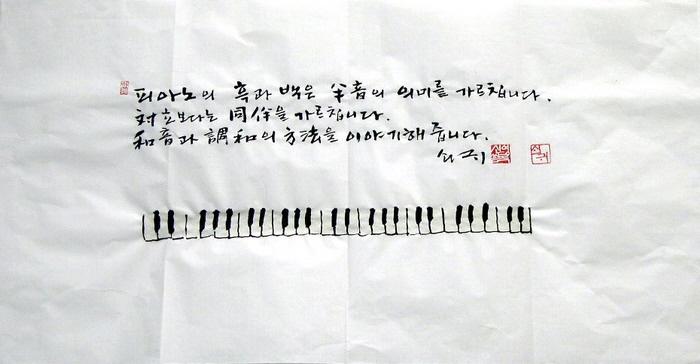 피아노의 흑과 백은 半音의 의미를 가르칩니다.
対立보다는 同伴을 가르칩니다.
和音과 調和의 方法을 이야기해 줍니다.
쇠귀